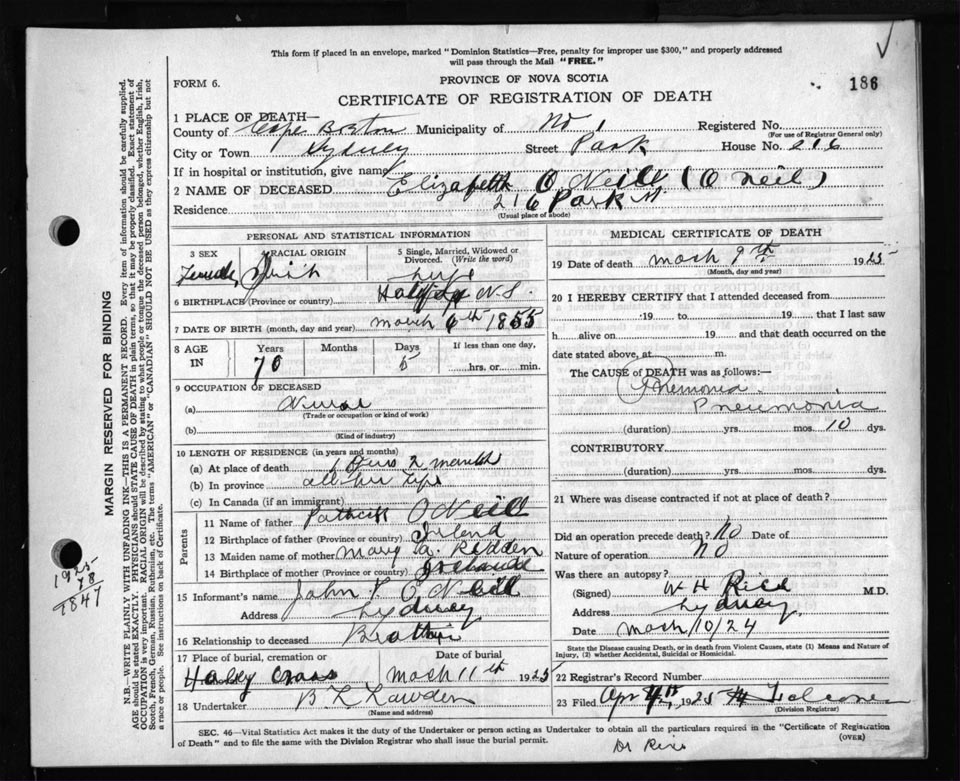 This form if placed in an envelope, marked "Dominion Statistics—Free, penalty for improper use $300," and properly addressed
will pass through the Mail "FREE."
FORM 6.
PROVINCE OF NOVA SCOTIA
186
CERTIFICATE OF REGISTRATION OF DEATH
1 PLACE OF DEATH—
County of Cape Breton Municipality of No 1 Registered No.
(For use of Registrar General only)
City or Town Sydney Street Park House No. 216
If in hospital or institution, give name
2 NAME OF DECEASED Elizabeth O Neill (O neil)
Residence 216 Park St
(Usual place of abode)
PERSONAL AND STATISTICAL INFORMATION
3 SEX Female
RACIAL ORIGIN Irish
5 Single, Married, Widowed or
Divorced. (Write the word)
6 BIRTHPLACE (Province or country) Halifax N.S.
7 DATE OF BIRTH (month, day and year) March 6th 1855
8 AGE
IN
Years Months Days If less than one day,
70 5 hrs. or min.
9 OCCUPATION OF DECEASED
(a)
(Trade or occupation or kind of work)
(b)
(Kind of industry)
10 LENGTH OF RESIDENCE (in years and months)
(a) At place of death 2 month
(b) In province all her life
(c) In Canada (if an immigrant)
Parents
11 Name of father Patrick O Neill
12 Birthplace of father (Province or country) Irland
13 Maiden name of mother Mary A. Redden
14 Birthplace of mother (Province or country) Ireland
15 Informant's name John P. O Neill
Address Sydney
16 Relationship to deceased Brother
17 Place of burial, cremation or Date of burial
Holey Cross Mach 11th 1925
18 Undertaker
(Name and address)
MEDICAL CERTIFICATE OF DEATH
19 Date of death Mach 9th 1925
(Month, day and year)
20 I HEREBY CERTIFY that I attended deceased from
19 to 19 that I last saw
h alive on 19 and that death occurred on the
date stated above, at m.
The CAUSE of DEATH was as follows:—
Pnemonia
Pneumonia
(duration) yrs. mos. 10 dys.
CONTRIBUTORY.
(duration) yrs. mos. dys.
21 Where was disease contracted if not at place of death?
Did an operation precede death? No Date of
Nature of operation No
Was there an autopsy?
(Signed) W H Rice M.D.
Address Sydney
Date Mach 10/24
State the Disease causing Death, or in death from Violent Causes, state (1) Means and Nature of
Injury, (2) whether Accidental, Suicidal or Homicidal.
22 Registrar's Record Number
23 Filed Apr 1925
(Division Registrar)
SEC. 46—Vital Statistics Act makes it the duty of the Undertaker or person acting as Undertaker to obtain all the particulars required in the "Certificate of Registration
of Death" and to file the same with the Division Registrar who shall issue the burial permit.
(OVER)
Dr Rice
MARGIN RESERVED FOR BINDING
N.B.—WRITE PLAINLY WITH UNFADING INK—THIS IS A PERMANENT RECORD. Every item of information should be carefully supplied.
AGE should be stated EXACTLY. PHYSICIANS should STATE CAUSE OF DEATH in plain terms, so that it may be properly classified. Exact statement of
OCCUPATION is very important. RACIAL ORIGIN will be described by stating to what people or tongue the deceased person belonged, whether English, Irish,
Scotch, French, German, Russian, Ruthenian, etc. The terms "AMERICAN" or "CANADIAN" SHOULD NOT BE USED as they express citizenship but not
a race or people. See instructions on back of Certificate.
1925
78
1847